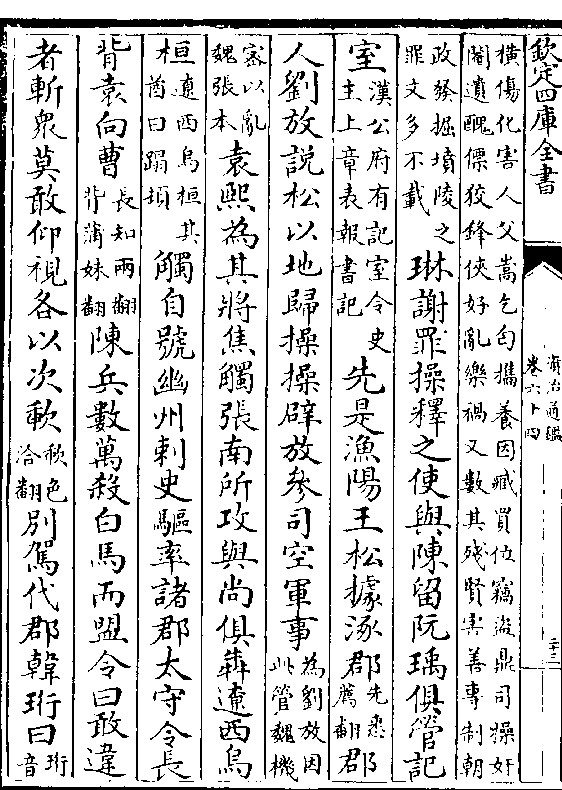 欽定四庫全書
資治通鑑
卷六十四
二十三
橫傷化害人父嵩乞匄攜養因臧買位竊盜鼎司操奸
閹遺醜僄狡鋒俠好亂樂禍又數其殘賢害善專制朝
政發掘墳陵之
罪文多不載
琳謝罪操釋之使與陳留阮瑀俱管記
室
漢公府有記室令史
主上章表報書記
先是漁陽王松據涿郡
先悉
薦翻
郡
人劉放說松以地歸操操辟放參司空軍事
為劉放因
此管魏機
密以亂
魏張本
袁熙為其將焦觸張南所攻與尚俱犇遼西烏
桓
遼西烏桓其
酋曰蹋頓
觸自號幽州刺史驅率諸郡太守令長
背袁向曹
長知兩翻
背蒲妹翻
陳兵數萬殺白馬而盟令曰敢違
者斬衆莫敢仰視各以次歃
歃色
洽翻
別駕代郡韓珩曰
珩
音